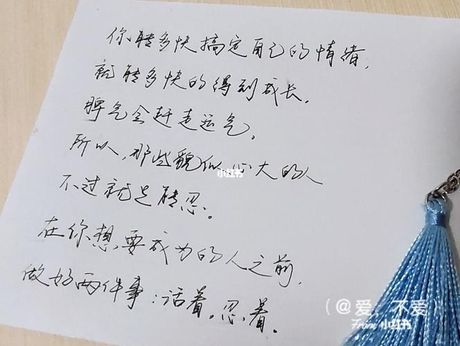 你能多快搞定自己的情绪，
就能多快的得到成长，
脾气会赶走运气。
所以，那些貌似心大的人
不过就是能忍。
在你想要成为的人之前，
做好两件事：活着，忍着。
小红书
(@爱，不爱)
From 小红书